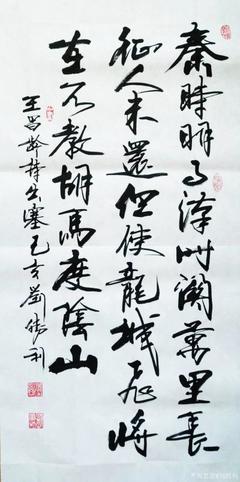 秦時明月漢時關萬里長
征人未還但使龍城飛將
在不教胡馬度陰山
王昌齡詩出塞己亥劉勝利